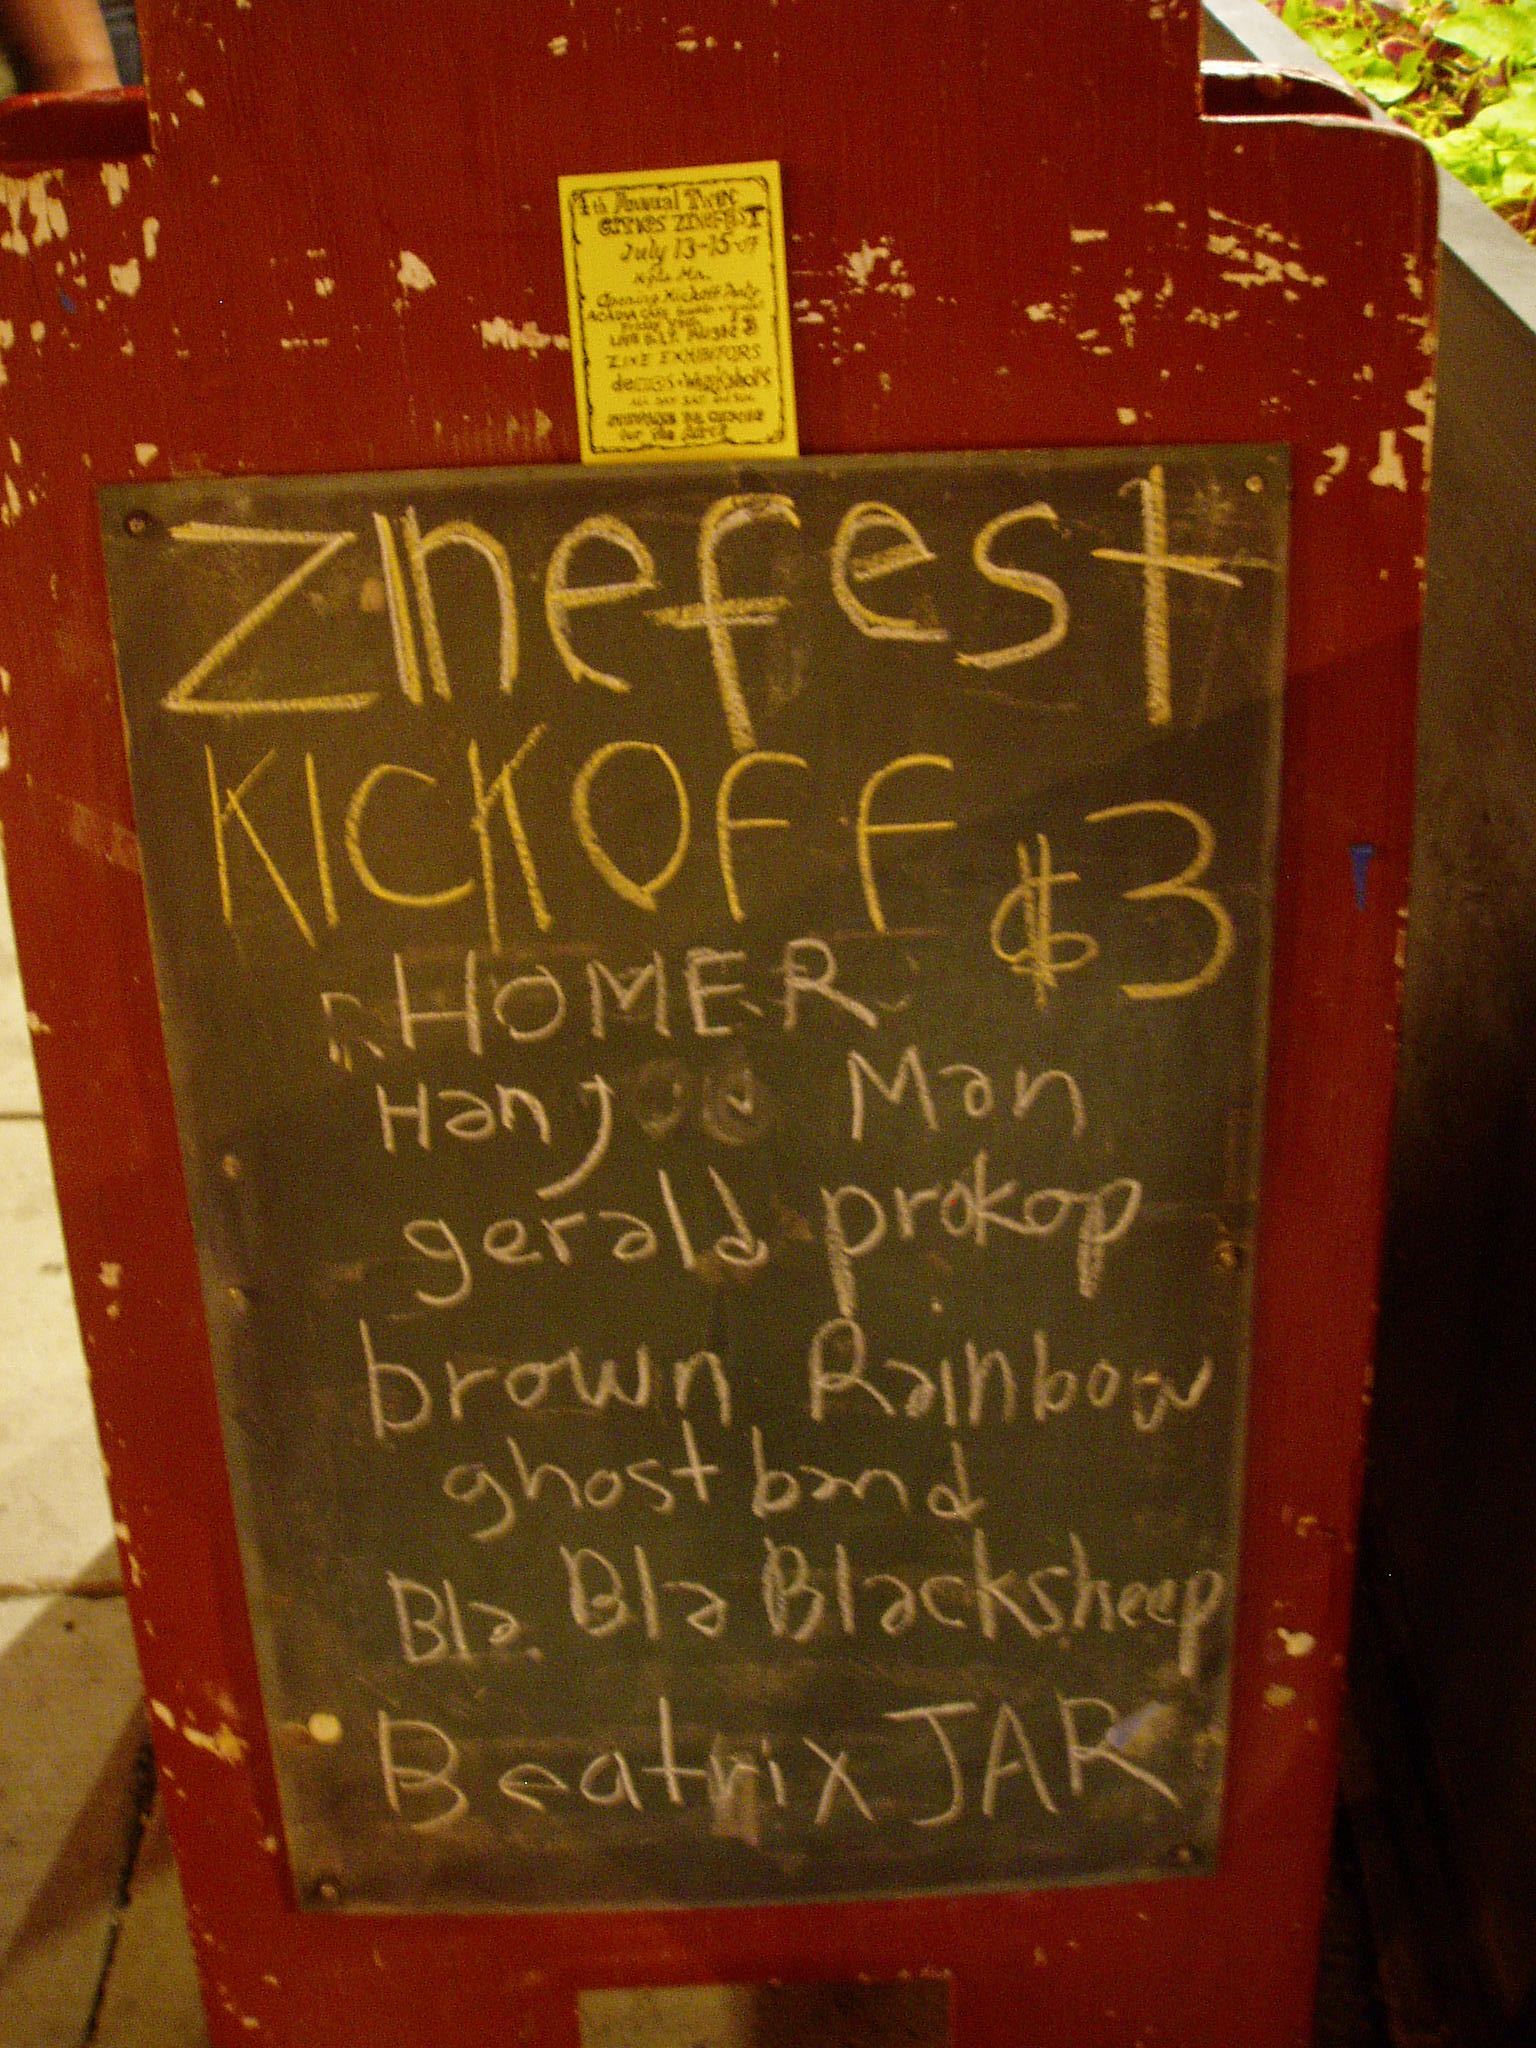 4th Annual Twin
Cities Zinefest
July 13-15-07
Mpls. Mn.
Opening Kickoff Party
ACADIA CAFE
LIVE D.I.Y. MUSIC
ZINE EXHIBITORS
demos + Workshops
ALL DAY SAT. and SUN.
for the
Zinefest
KICKOFF $3
HOMER
Hanj Man
gerald prokop
brown Rainbow
ghost band
Bla. Bla Blacksheep
Beatrix JAR